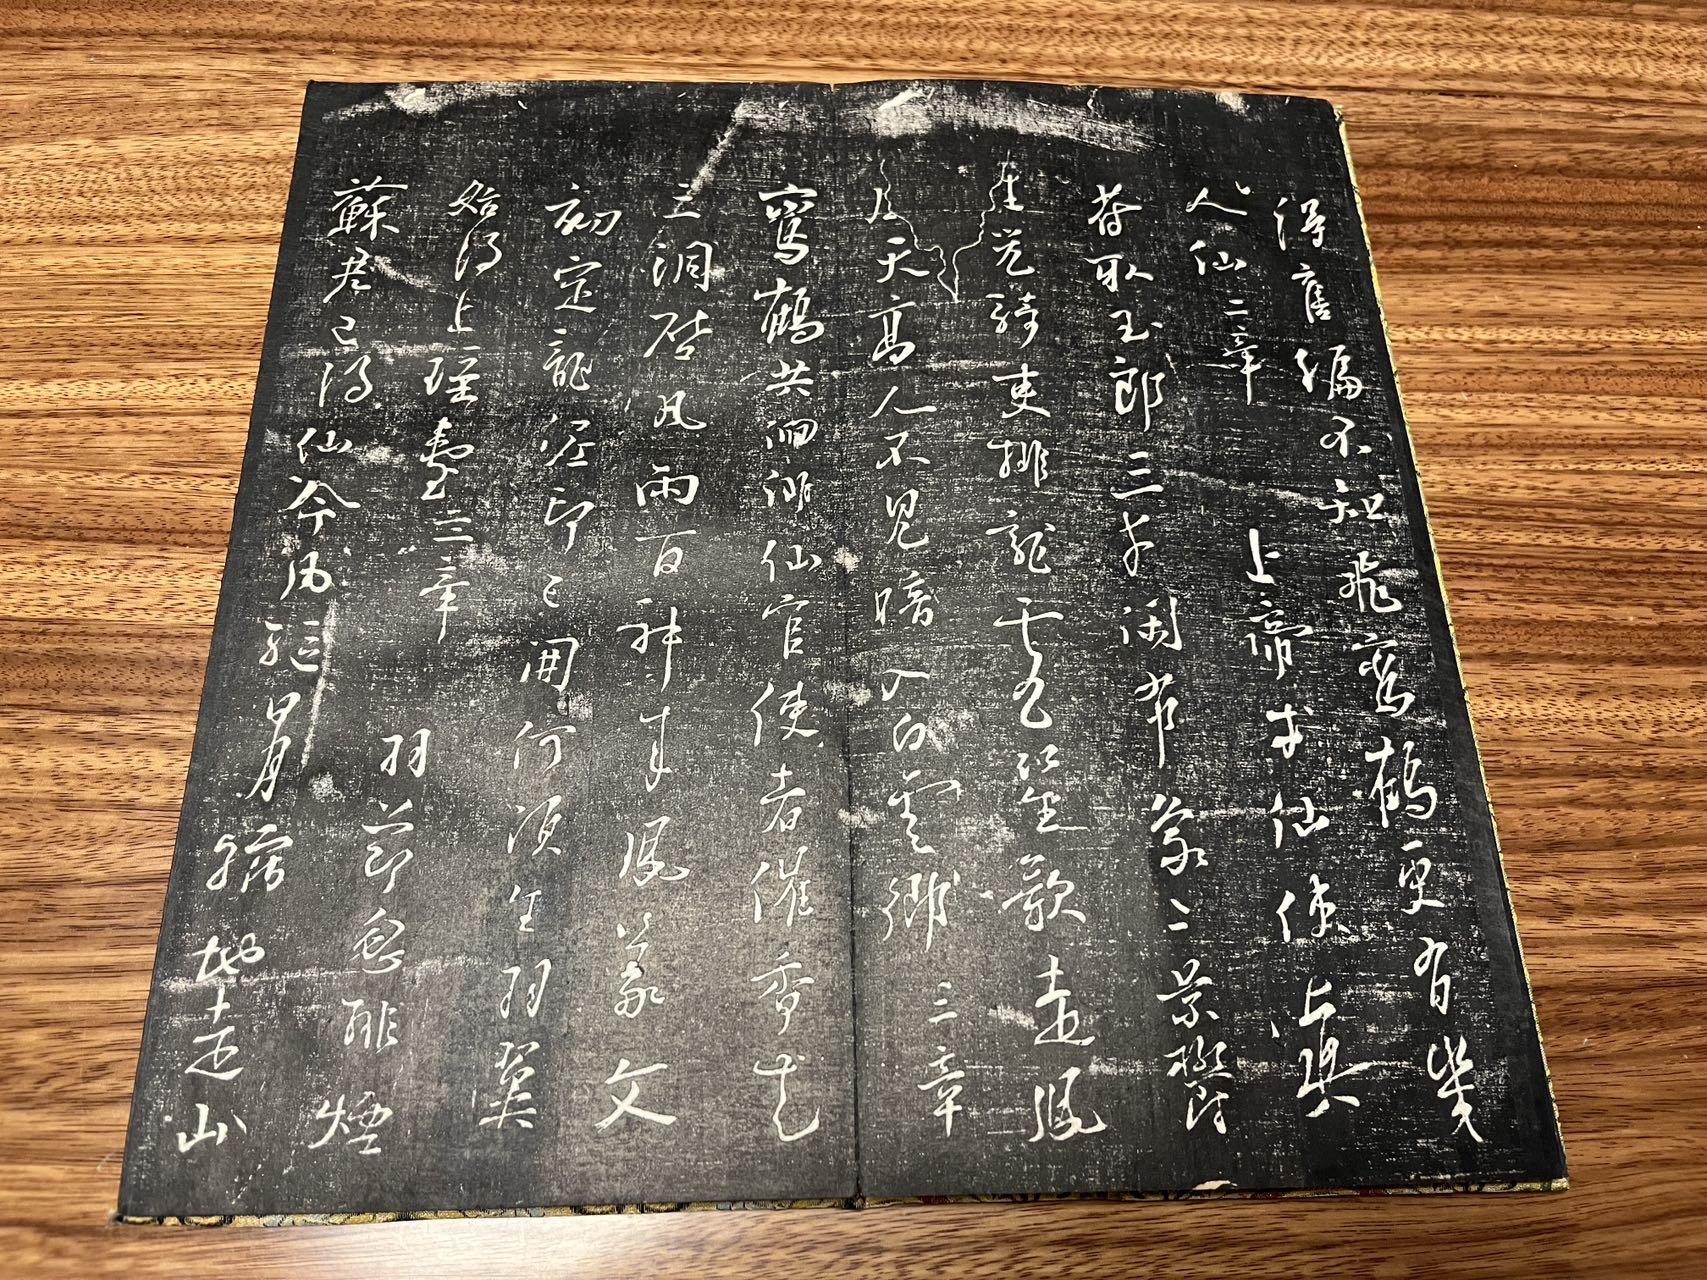 得舊編不知飛鸞鶴更有幾
人仙二章 上帝求仙使真
符取玉郎三才閑布象二景鬱
生光騎吏排龍虎笙歌走鳳
凰天高人不見暗入白雲鄉三章
鸞鶴共徘徊仙官使者催香花
三洞啓風雨百神來鳳篆文
初定龍泥印已開何須生羽翼
始得上瑤臺三章 羽節忽排煙
蘇君已得仙命風驅日月縮地走山